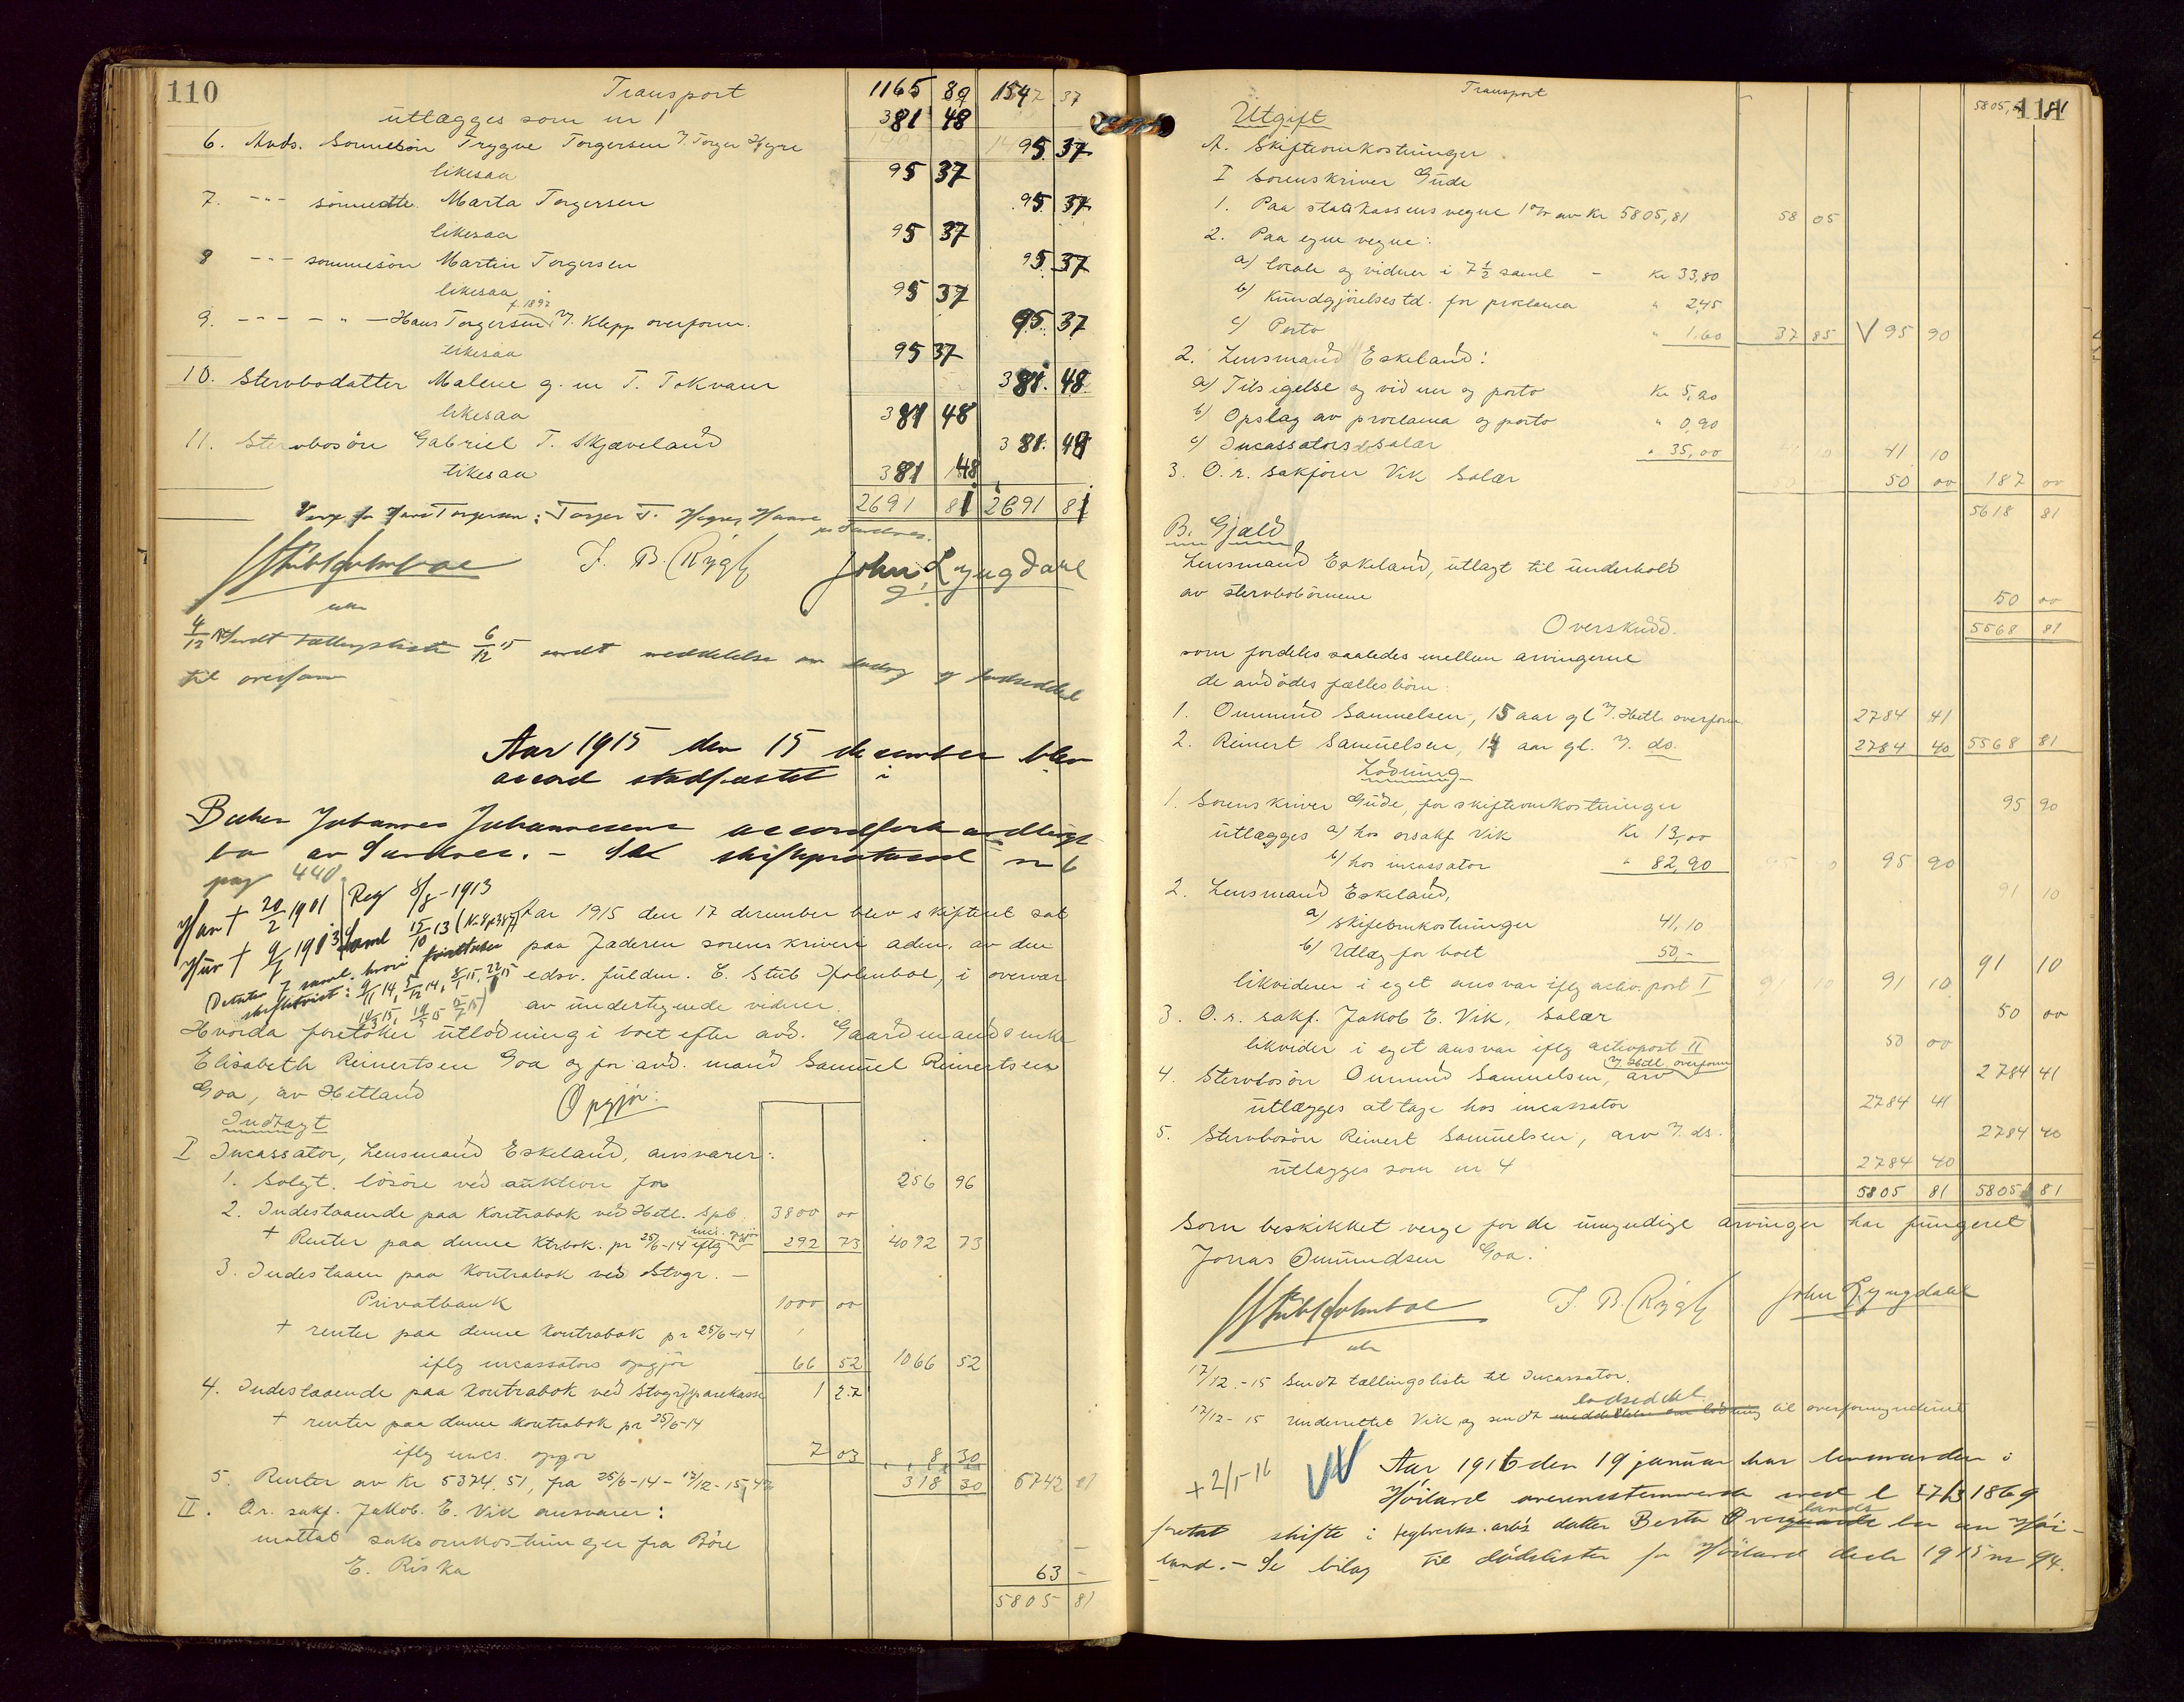 110
Transport 1165 89 1547 37
utlægges som nr 1 381 48
6. Avds. Sonnesön Trygve Torgersen 95 37
likesaa 95 37
7. --- sönnedtr. Marta Torgersen 95 37
likesaa 95 37
8 --- sonnesön Martin Torgersen 95 37
likesaa 95 37
f. 1897
9. --- - " - Hans Torgersen Kr. Klepp overform. 95 37
likesaa 95 37
10. Stervbodatter Malene g. m T. Tokvam 381. 48
likesaa 381 48
11. Stervbosön Gabriel T. Skjæveland 381. 49
likesaa 381 48
2691 81 2691 81
Verge for Hans Torgersen: Torger T.
E Stub Holmboe T. B. Rygh John Lyngdahl
4/12 15 sendt tællingsliste 6/12 15 sendt meddelelse om utlodning og lodseddel
til overform
Aar 1915 den 15 december blev
accord stadfæstet i
Baker Johannes Johannesens accordforhandlings
bo av Sandnes. - Se skifteprotocol nr 6
pag 440.
Han † 20/2 1901 Reg 8/8 - 1913
Hun † 9/7 1913 Saml 15/10 13
Aar 1915 den 17 december blev skifteret sat
paa Jæderen sorenskriveri adm. av den
edsv. fuldm. E. Stub Holmboe, i overvær
av undertegnede vidner.
Hvorda foretokes utlodning i boet efter avd. Gaardmandsenke
Elisabeth Reinertsen Goa og for avd. mand Samuel Reinertsen
Goa, av Hetland
Opgjör:
Indtægt
I Incassator, Lensmand Eskeland, ansvarer:
1. Solgt lösöre ved auktion for 256 96
2. Indestaaende paa Kontrabok ved Hetl. Spb. 3800 00
+ Renter paa denne Ktrbok. pr 25/6-14 iflg inc. opgjör 292 73 4092 73
3. Indestaaen paa Kontrabok ved Stvgr. -
Privatbank 1000 00
+ renter paa denne Kontrabok pr 25/6-14
iflg incassators opgjör 66 52 1066 52
4. Indestaaende paa Kontrabok ved Stvgr Sparekasse 1 27
+ renter paa denne Kontrabok pr 25/6-14
iflg incs. opgör 7 03 8 30
5. Renter av Kr 5374.51, fra 25/6-14 - 17/12-15, 4% 318 30 5742 81
II. O.r. sakf. Jakob E. Vik ansvarer:
mottat saksomkostninger fra Böre
E. Riska 63 -
5805 81
111
Transport 5805, 81
Utgift
A. Skifteomkostninger
I Sorenskriver Gude
1. Paa statskassens vegne 1% av Kr 5805,81 58 05
2. Paa egne vegne:
a) locale og vidner i 7 1/2 saml - Kr 33,80
b) Kundgjörelsestd. for proclama " 2,45
c) Porto " 1.60 37 85 V 95 90
2. Lensmand Eskeland:
a) Tilsigelse og vidner og porto Kr 5,20
b) Opslag av proclama og porto " 0,90
c) Incassators salær " 35,00 41 10
3. O.r. sakförer Vik Salær 50 00 187 00
5618 81
B. Gjæld
Lensmand Eskeland, utlagt til underhold
av stervbobörnene 50 00
Overskudd. 5568 81
som fordeles saaledes mellem arvingerne
de avdödes fællesbörn:
1. Ommund Samuelsen, 15 aar gl Kr. Hetl. overform 2784 41
2. Reinert Samuelsen, 14 aar gl. Kr. do. 2784 40 5568 81
Lodning
1. Sorenskriver Gude, for skifteomkostninger 95 90
utlægges a) hos orsakf Vik Kr 13,00
b) hos incassator " 82,90 95 90
2. Lensmand Eskeland, 91 10
a) skifteomkostninger 41,10
b) Utlæg for boet 50,-
likviderer i eget ansvar iflg activ. post I 91 10 91 10
3. O.r. sakf. Jakob E. Vik, Salær 50 00
likvider i eget ansvar iflg activpost II 50 00
4. Stervbosön Ommund Samuelsen, arv Kr Hetl. overform 2784 41
utlægges at tage hos incassator 2784 41
5. Stervbosön Reinert Samuelsen, arv Kr. do. 2784 40
utlægges som nr 4 2784 40
5805 81 5805 81
Som beskikket verge for de umyndige arvinger har fungeret
Jonas Ommundsen Goa.
E Stub Holmboe T. B. Rygh John Lyngdahl
17/12.-15 Sendt tællingsliste til Incassator.
17/12-15 Underrettet Vik og sendt meddelelse om lodning lodseddel til overformynderiet
+ 2/1-16
Aar 1916 den 19 januar har lensmanden i
Höiland overensstemmende med l 17/3 1869
foretat skifte i teglverks.arb's datter Berta Overlands bo av Höi-
land. - Se bilag til dödslisten for Höiland dech 1915 nr 94.